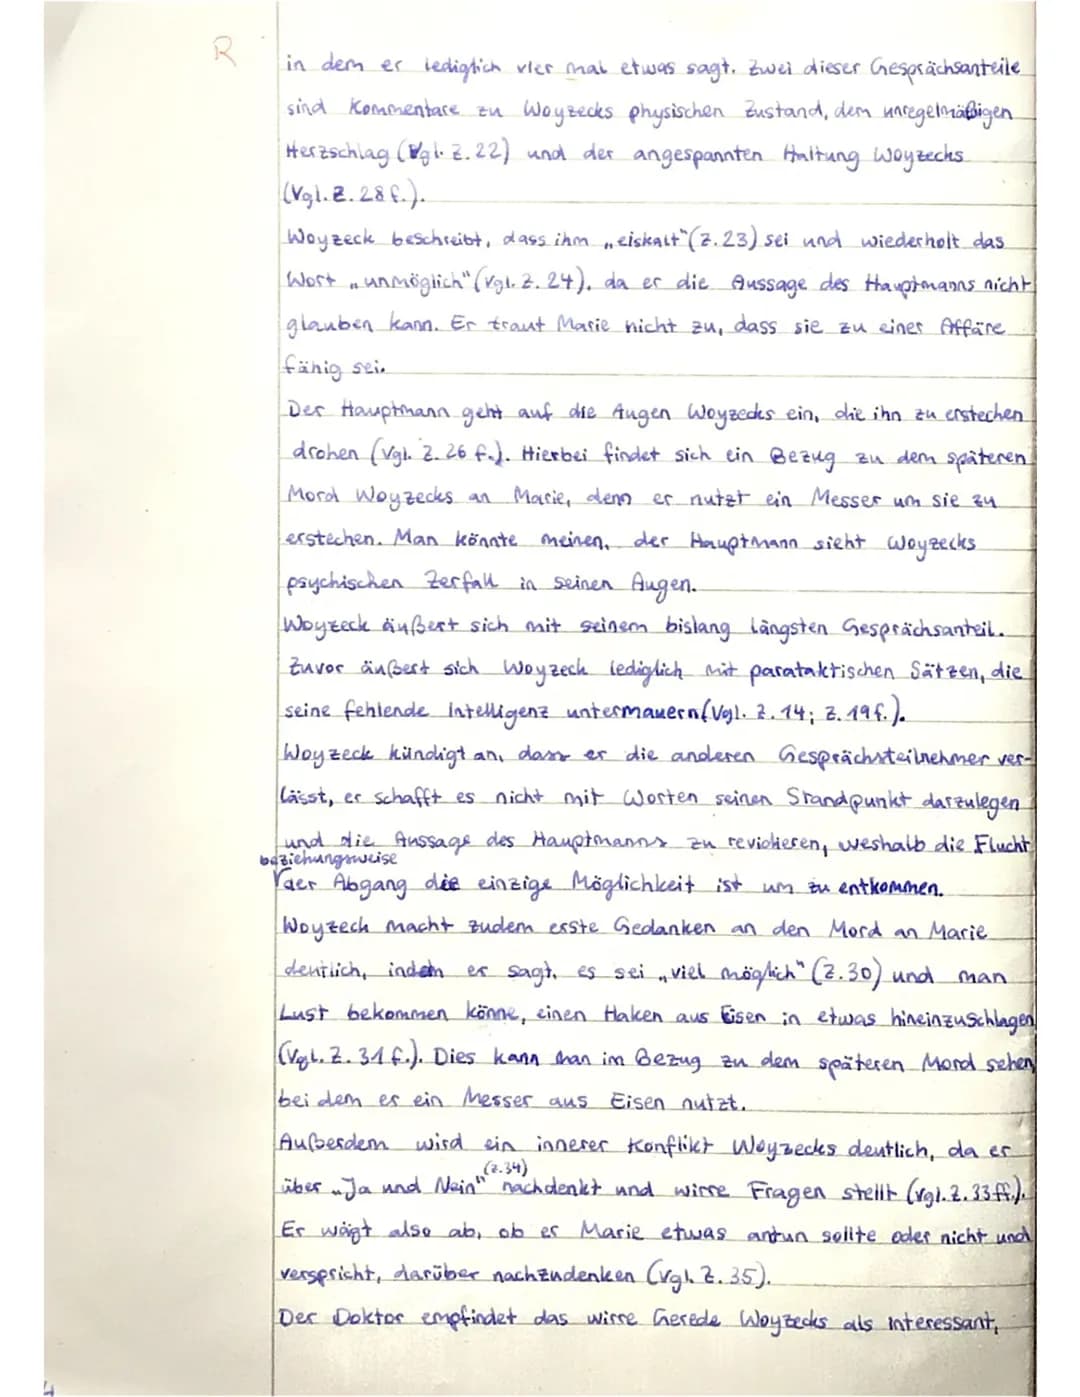 R
in dem er lediglich vier mal etwas sagt. Zwei dieser Gesprächsanteile
sind Kommentare zu Woyzecks physischen Zustand, dem unregelmäßigen
Herzschlag (Vgl. Z. 22) und der angespannten Haltung Woyzecks
(Vgl. Z. 28 f.).
Woyzeck beschreibt, dass ihm „eiskalt" (Z. 23) sei und wiederholt das
Wort „unmöglich" (vgl. Z. 24), da er die Aussage des Hauptmanns nicht
glauben kann. Er traut Marie nicht zu, dass sie zu einer Affäre
fähig sei.
Der Hauptmann geht auf die Augen Woyzecks ein, die ihn zu erstechen
drohen (Vgl. Z. 26 f.). Hierbei findet sich ein Bezug zu dem späteren
Mord Woyzecks an Marie, denn er nutzt ein Messer um sie zu
erstechen. Man könnte meinen, der Hauptmann sieht Woyzecks
psychischen Zerfall in seinen Augen.
Woyzeck äußert sich mit seinem bislang längsten Gesprächsanteil.
Zuvor äußert sich Woyzeck lediglich mit parataktischen Sätzen, die
seine fehlende Intelligenz untermauern (Vgl. Z. 14; Z. 19 f.).
Woyzeck kündigt an, dass er die anderen Gesprächsteilnehmer ver-
lässt, er schafft es nicht mit Worten seinen Standpunkt darzulegen
und die Aussage des Hauptmanns zu revidieren, weshalb die Flucht
beziehungsweise
der Abgang die einzige Möglichkeit ist um zu entkommen.
Woyzeck macht zudem erste Gedanken an den Mord an Marie
deutlich, indem er sagt, es sei „viel möglich" (Z. 30) und man
Lust bekommen könne, einen Haken aus Eisen in etwas hineinzuschlagen
(Vgl. Z. 31 f.). Dies kann man im Bezug zu dem späteren Mord sehen,
bei dem er ein Messer aus Eisen nutzt.
Außerdem wird ein innerer Konflikt Woyzecks deutlich, da er
(Z. 34)
über „Ja und Nein" nachdenkt und wirre Fragen stellt (vgl. Z. 33 ff.).
Er wägt also ab, ob er Marie etwas antun sollte oder nicht und
verspricht, darüber nachzudenken (vgl. Z. 35).
Der Doktor empfindet das wirre Gerede Woyzecks als interessant,
4